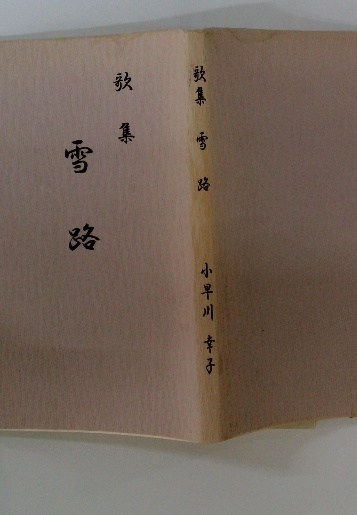 歌集
雪路
歌集 雪路 小早川 幸子